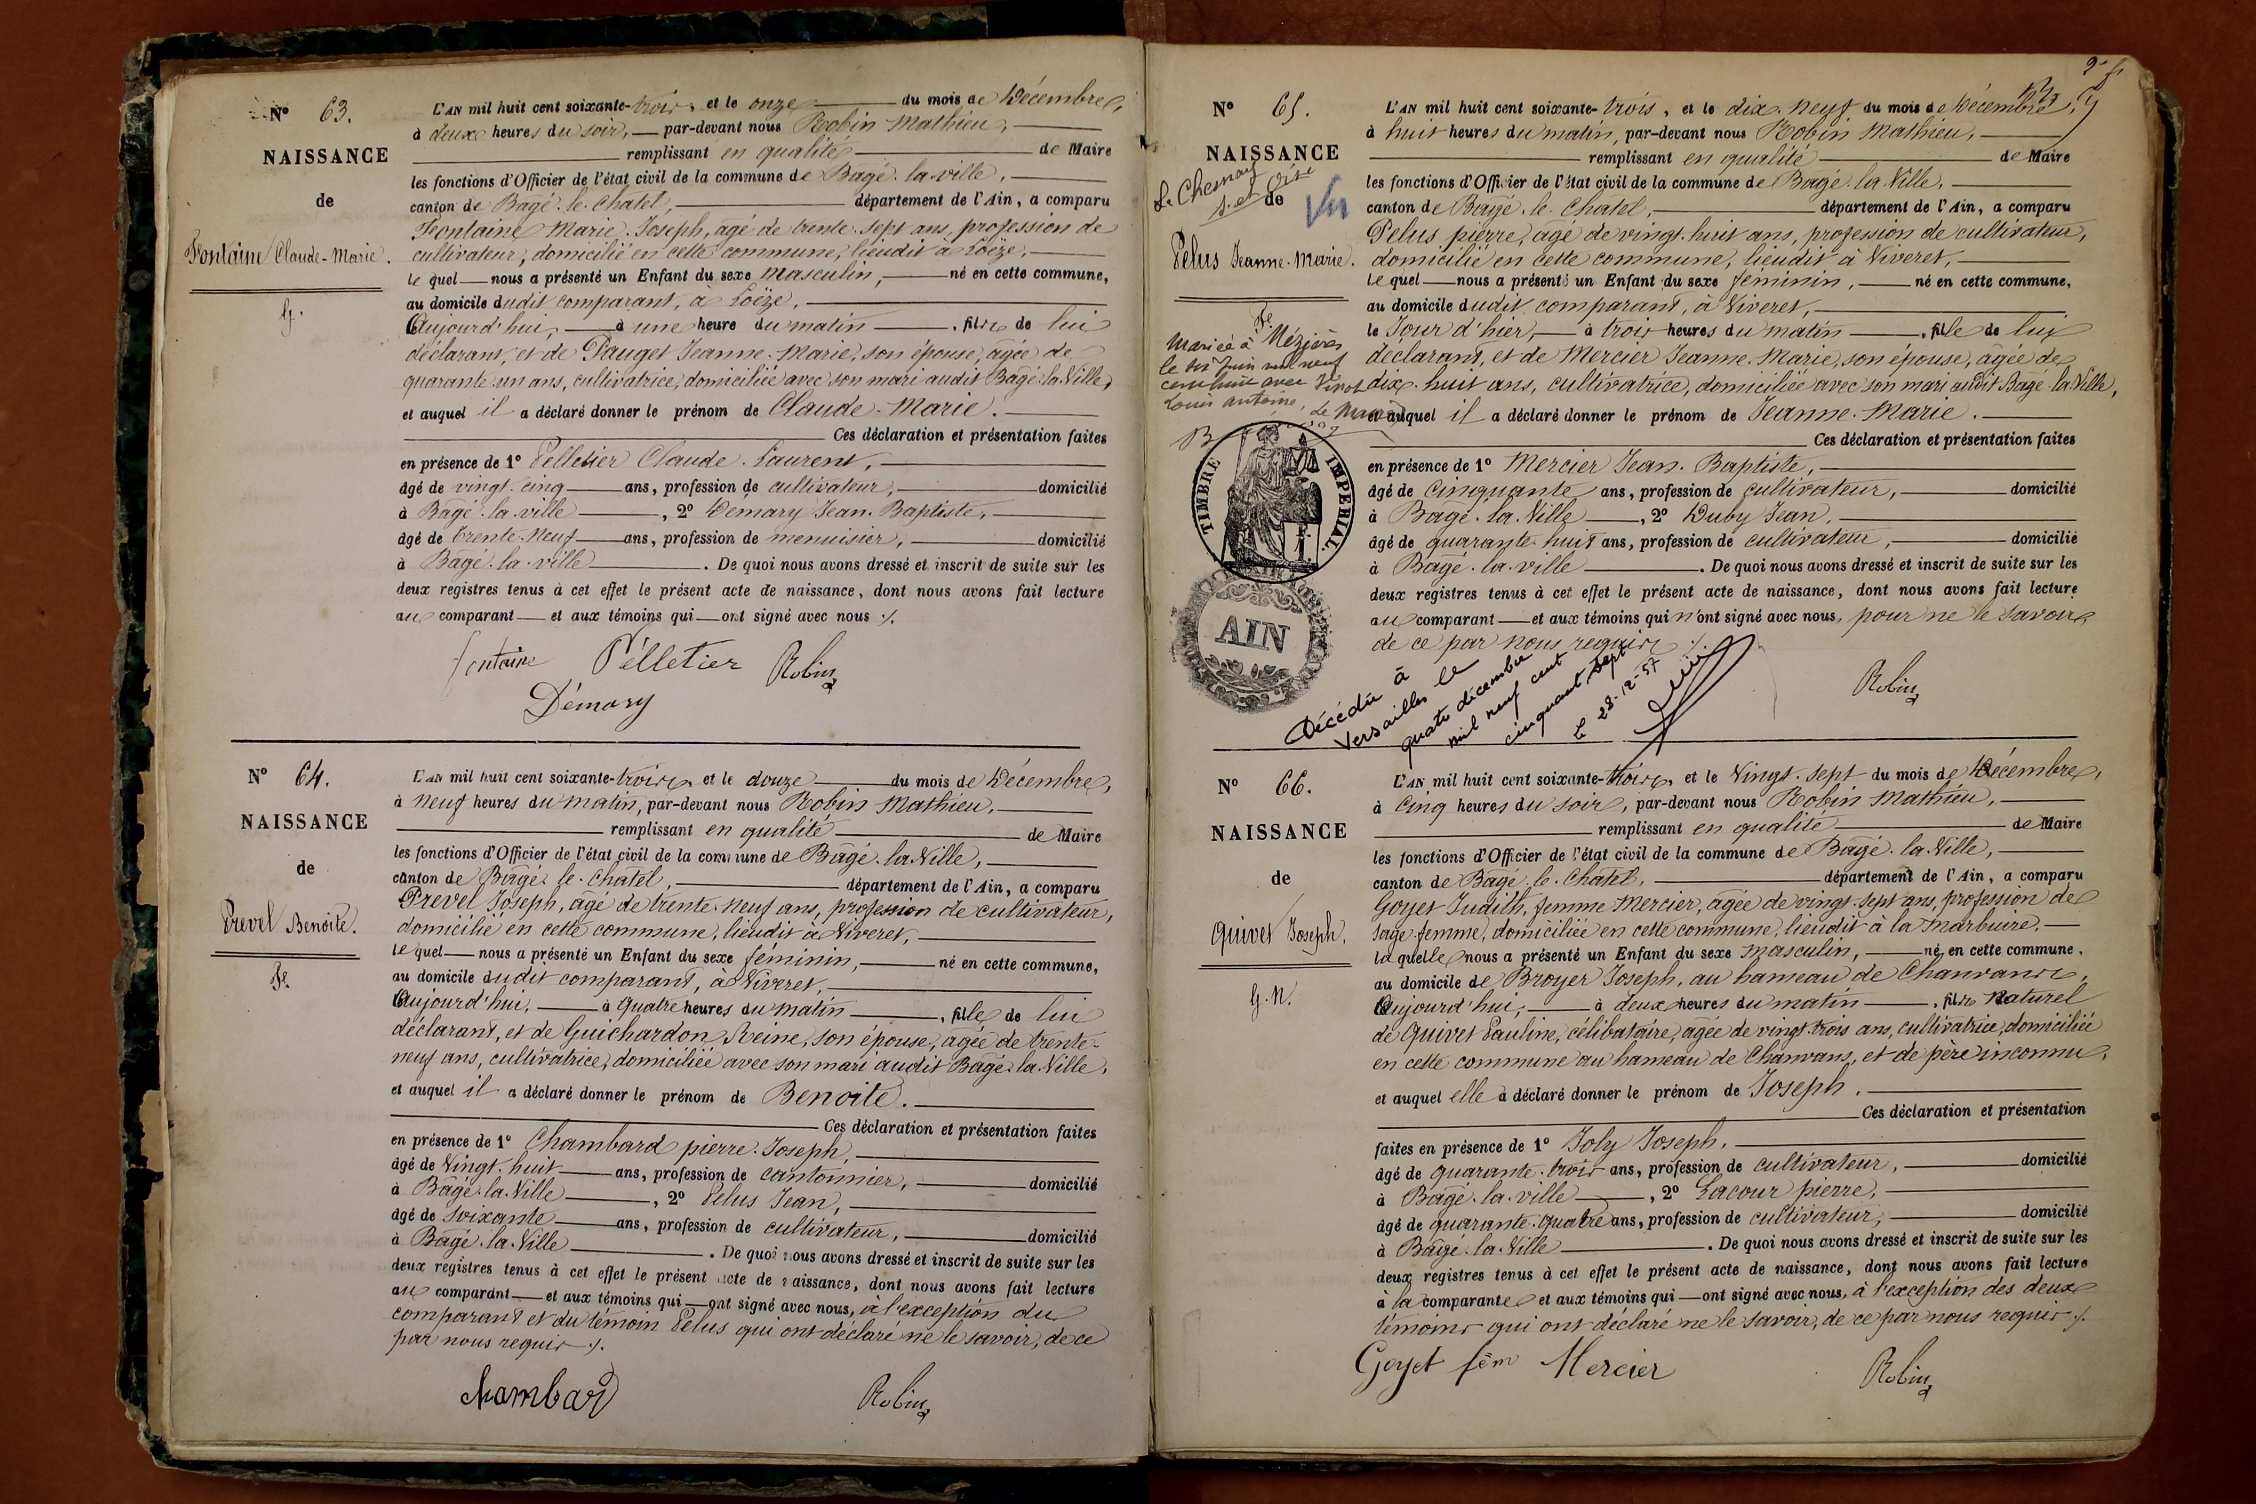 N° 63.
NAISSANCE
de
Fontaine Claude-Marie.
G.
L'AN mil huit cent soixante-trois, et le onze du mois de Décembre,
à deux heures du soir, par-devant nous Robin Mathieu,
remplissant en qualité de Maire
les fonctions d'Officier de l'état civil de la commune de Bagé-la-ville,
canton de Bagé-le-Chatel, département de l'Ain, a comparu
Fontaine Marie-Joseph, agé de trente-sept ans, profession de
cultivateur, domicilié en cette commune, lieudit à Loëze,
le quel nous a présenté un Enfant du sexe masculin, né en cette commune,
au domicile dudit comparant, à Loëze,
Aujourd'hui, à une heure du matin, fils de lui
déclarant, et de Pauget Jeanne-Marie, son épouse, agée de
quarante-un ans, cultivatrice, domiciliée avec son mari audit Bagé-la-Ville,
et auquel il a déclaré donner le prénom de Claude-Marie.
Ces déclaration et présentation faites
en présence de 1° Pelletier Claude-Laurent,
âgé de vingt-cinq ans, profession de cultivateur, domicilié
à Bagé-la-ville, 2° Démary Jean-Baptiste,
âgé de trente-neuf ans, profession de menuisier, domicilié
à Bagé-la-ville. De quoi nous avons dressé et inscrit de suite sur les
deux registres tenus à cet effet le présent acte de naissance, dont nous avons fait lecture
au comparant et aux témoins qui ont signé avec nous ./.
fontaine Pélletier Robin
Démary
N° 64.
NAISSANCE
de
Prevel Benoite.
Fe.
L'AN mil huit cent soixante-trois, et le douze du mois de Décembre,
à neuf heures du matin, par-devant nous Robin Mathieu,
remplissant en qualité de Maire
les fonctions d'Officier de l'état civil de la commune de Bagé-la-Ville,
canton de Bagé-le-Chatel, département de l'Ain, a comparu
Prevel Joseph, agé de trente-neuf ans, profession de cultivateur,
domicilié en cette commune, lieudit à Viveret,
le quel nous a présenté un Enfant du sexe féminin, né en cette commune,
au domicile dudit comparant, à Viveret,
Aujourd'hui, à quatre heures du matin, fille de lui
déclarant, et de Guichardon Reine, son épouse, agée de trente-
neuf ans, cultivatrice, domiciliée avec son mari audit Bagé-la-Ville,
et auquel il a déclaré donner le prénom de Benoite.
Ces déclaration et présentation faites
en présence de 1° Chambard pierre-Joseph,
âgé de Vingt-huit ans, profession de cantonnier, domicilié
à Bagé-la-Ville, 2° Pelus Jean,
âgé de soixante ans, profession de cultivateur, domicilié
à Bagé-la-Ville. De quoi nous avons dressé et inscrit de suite sur les
deux registres tenus à cet effet le présent acte de naissance, dont nous avons fait lecture
au comparant et aux témoins qui ont signé avec nous, à l'exception du
comparant et du témoin Pelus qui ont déclaré ne le savoir, de ce
par nous requis ./.
Chambard Robin
N° 65.
NAISSANCE
Le Chesnay
S. et Oise
de
Pelus Jeanne-Marie.
Fe.
Mariée à Mézières
le six Juin mil neuf
cent avec
Louis Antoine,
TIMBRE IMPÉRIAL.
AIN
L'AN mil huit cent soixante-trois, et le dix-neuf du mois de Décembre,
à huit heures du matin, par-devant nous Robin Mathieu,
remplissant en qualité de Maire
les fonctions d'Officier de l'état civil de la commune de Bagé-la-Ville,
canton de Bagé-le-Chatel, département de l'Ain, a comparu
Pelus pierre, agé de vingt-huit ans, profession de cultivateur,
domicilié en cette commune, lieudit à Viveret,
le quel nous a présenté un Enfant du sexe féminin, né en cette commune,
au domicile dudit comparant, à Viveret,
le Jour d'hier, à trois heures du matin, fille de lui
déclarant, et de Mercier Jeanne-Marie, son épouse, agée de
dix-huit ans, cultivatrice, domiciliée avec son mari audit Bagé-la-Ville,
et auquel il a déclaré donner le prénom de Jeanne-Marie.
Ces déclaration et présentation faites
en présence de 1° Mercier Jean-Baptiste,
âgé de cinquante ans, profession de cultivateur, domicilié
à Bagé-la-Ville, 2° Duby Jean,
âgé de quarante-huit ans, profession de cultivateur, domicilié
à Bagé-la-ville. De quoi nous avons dressé et inscrit de suite sur les
deux registres tenus à cet effet le présent acte de naissance, dont nous avons fait lecture
au comparant et aux témoins qui n'ont signé avec nous, pour ne le savoir,
de ce par nous requis ./.
Décédée à
Versailles le
quatre décembre
mil neuf cent
cinquante sept
le 28-12-57
Robin
N° 66.
NAISSANCE
de
Quivet Joseph.
G. N.
L'AN mil huit cent soixante-trois, et le Vingt-sept du mois de Décembre,
à cinq heures du soir, par-devant nous Robin Mathieu,
remplissant en qualité de Maire
les fonctions d'Officier de l'état civil de la commune de Bagé-la-Ville,
canton de Bagé-le-Chatel, département de l'Ain, a comparu
Goyet Judith, femme Mercier, agée de vingt-sept ans, profession de
sage-femme, domiciliée en cette commune, lieudit à la Marbuire,
la quelle nous a présenté un Enfant du sexe masculin, né en cette commune.
au domicile de Broyer Joseph, au hameau de Chanvans,
Aujourd'hui, à deux heures du matin, fils naturel
de Quivet Pauline, célibataire, agée de vingt-trois ans, cultivatrice, domiciliée
en cette commune au hameau de Chanvans, et de père inconnu,
et auquel elle a déclaré donner le prénom de Joseph.
Ces déclaration et présentation
faites en présence de 1° Joly Joseph,
âgé de quarante-trois ans, profession de cultivateur, domicilié
à Bagé-la-ville, 2° Lacour pierre,
âgé de quarante-quatre ans, profession de cultivateur, domicilié
à Bagé-la-Ville. De quoi nous avons dressé et inscrit de suite sur les
deux registres tenus à cet effet le présent acte de naissance, dont nous avons fait lecture
à la comparante et aux témoins qui ont signé avec nous, à l'exception des deux
témoins qui ont déclaré ne le savoir, de ce par nous requis ./.
Goyet fem Mercier Robin